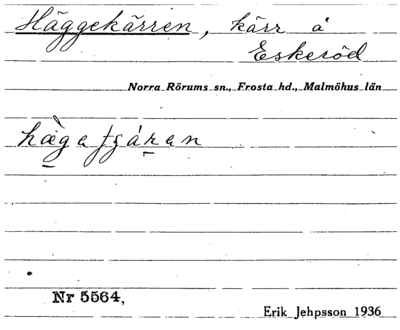 Häggekärren, kärr å
Eskeröd
Norra Rörums sn., Frosta hd., Malmöhus län
Nr 5564,
Erik Jehpsson 1936